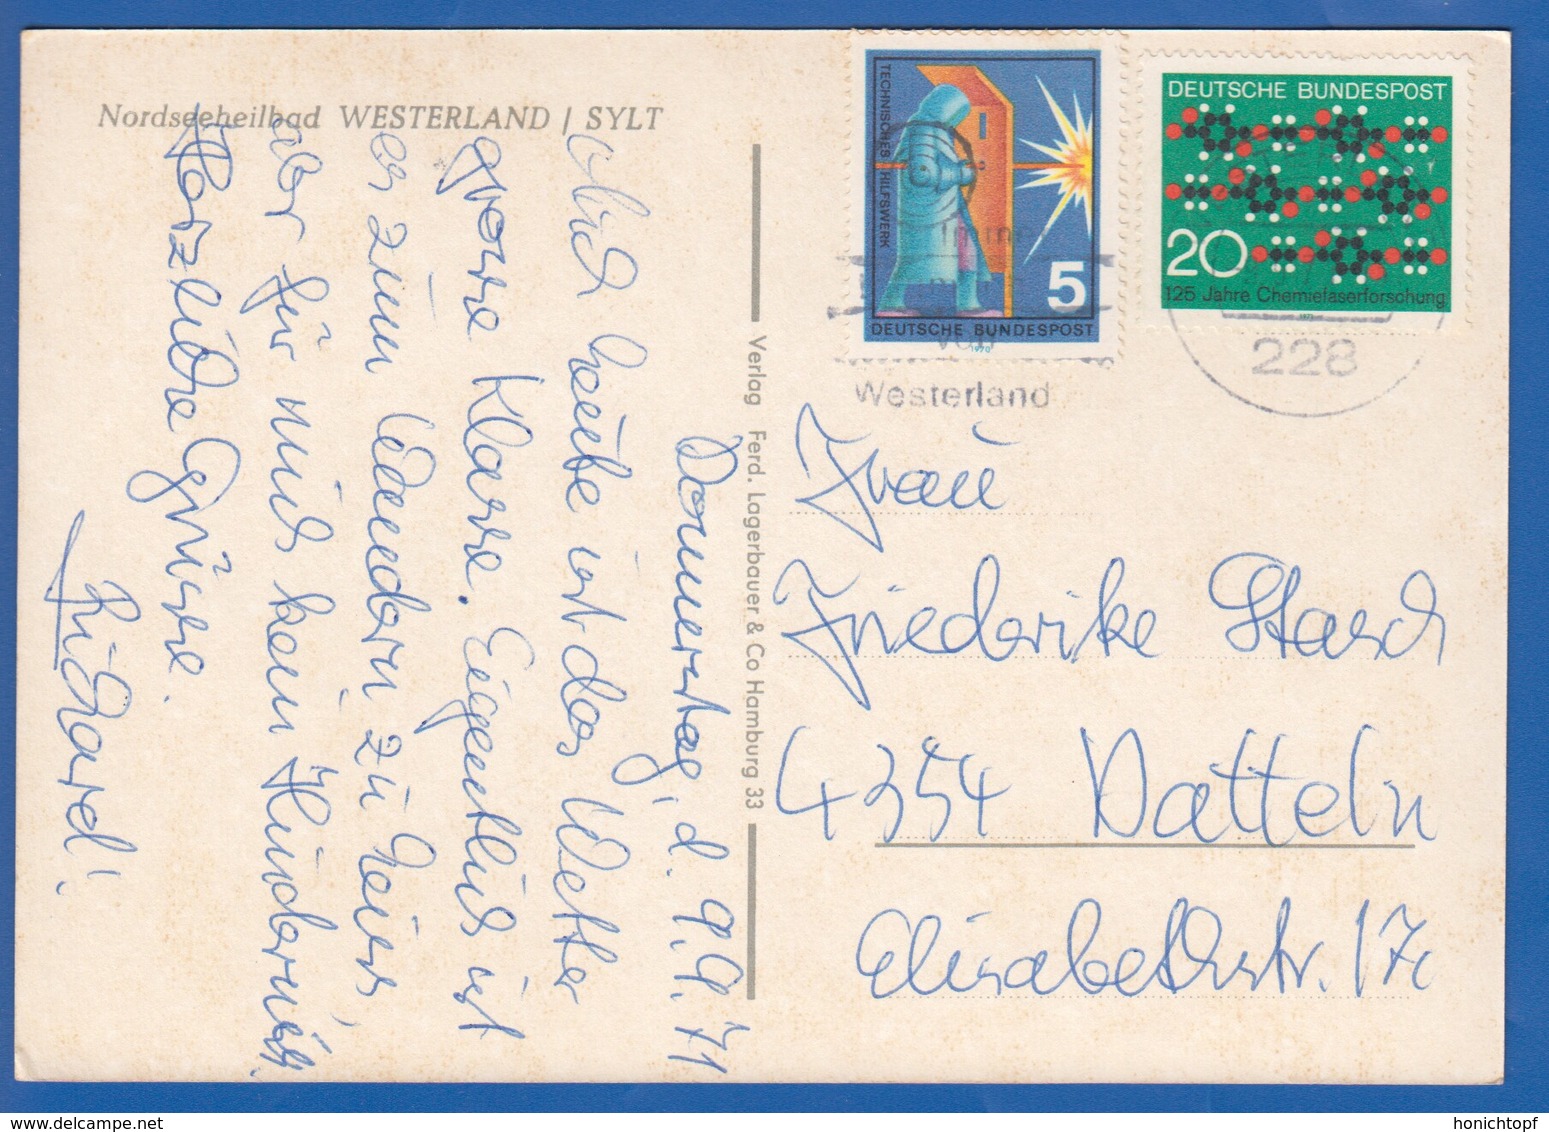 Nordseeheilbad WESTERLAND / SYLT
Donnerstag, d. 9.9.71
Auch heute ist das Wetter
grosse Klasse. Eigentlich ist
es zum Wandern zu heiss,
aber für mich kein Hindernis.
Herzliche Grüsse.
Richard!
Verlag Ferd. Lagerbauer & Co Hamburg 33
TECHNISCHES HILFSWERK
5
DEUTSCHE BUNDESPOST
1970
DEUTSCHE BUNDESPOST
20
125 Jahre Chemiefaserforschung
1971
Westerland
228
Frau
Friederike Stasch
4354 Datteln
Elisabethstr. 17c
delcampe.net
honichtopf